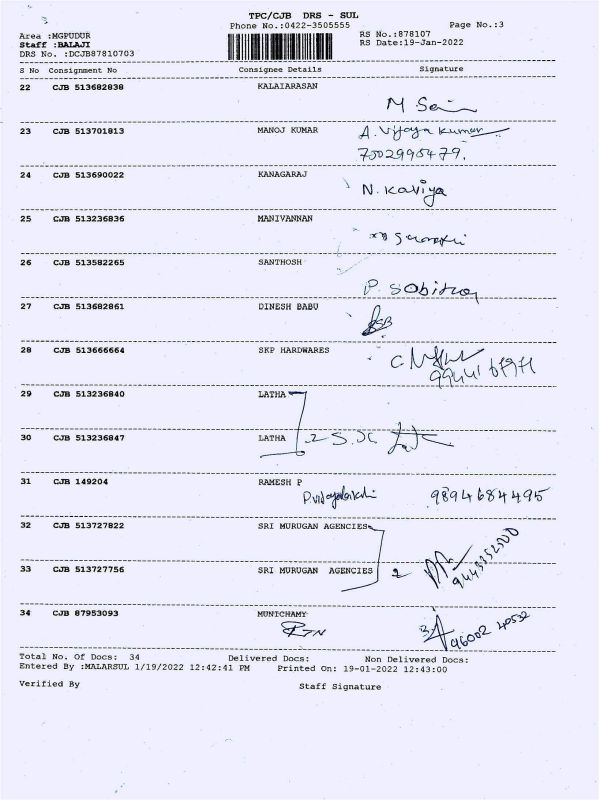 TPC/CJB DRS - SUL
Phone No.:0422-3505555
Page No.:3
Area :MGPUDUR
RS No.:878107
Staff :BALAJI
RS Date:19-Jan-2022
DRS No. :DCJB87810703
S No Consignment No Consignee Details Signature
22 CJB 513682838 KALAIARASAN
M
23 CJB 513701813 MANOJ KUMAR A. Vijaya kumar
7502995479.
24 CJB 513690022 KANAGARAJ
N. Kaviya
25 CJB 513236836 MANIVANNAN
26 CJB 513582265 SANTHOSH
P.
27 CJB 513682861 DINESH BABU
28 CJB 513666664 SKP HARDWARES
29 CJB 513236840 LATHA
30 CJB 513236847 LATHA 2
31 CJB 149204 RAMESH P
9894684495
32 CJB 513727822 SRI MURUGAN AGENCIES
33 CJB 513727756 SRI MURUGAN AGENCIES 2
34 CJB 87953093 MUNICHAMY
96002 40532
Total No. Of Docs: 34 Delivered Docs: Non Delivered Docs:
Entered By :MALARSUL 1/19/2022 12:42:41 PM Printed On: 19-01-2022 12:43:00
Verified By Staff Signature